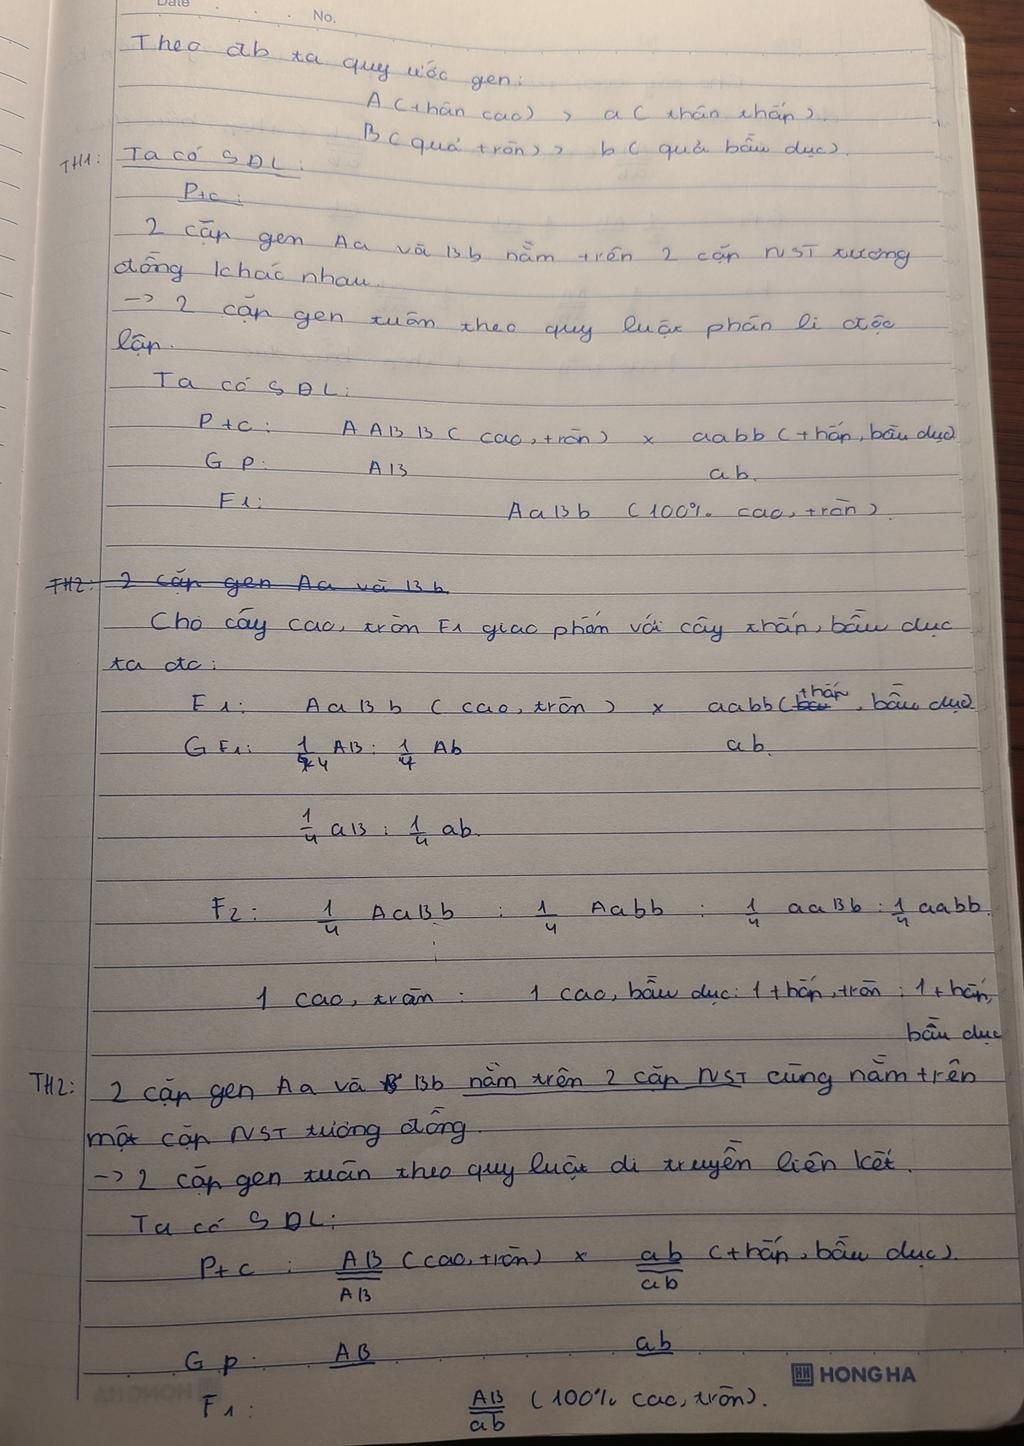 Date
No.
Theo đb ta quy ước gen:
A (thân cao) > a (thân thấp).
B (quả tròn) > b (quả bầu dục).
TH1: Ta có SĐL:
Ptc:
2 cặp gen Aa và Bb nằm trên 2 cặp NST tương
đồng khác nhau.
-> 2 cặp gen tuân theo quy luật phân li độc
lập.
Ta có SĐL:
Ptc: AABB (cao, tròn) x aabb (thấp, bầu dục)
Gp: AB ab.
F1: AaBb (100% cao, tròn).
TH2: 2 cặp gen Aa và Bb
Cho cây cao, tròn F1 giao phấn với cây thấp, bầu dục
ta đc:
F1: AaBb (cao, tròn) x aabb (thấp, bầu dục)
GF1: 1/4 AB : 1/4 Ab ab.
1/4 aB : 1/4 ab.
F2: 1/4 AaBb : 1/4 Aabb : 1/4 aaBb : 1/4 aabb.
1 cao, tròn : 1 cao, bầu dục : 1 thấp, tròn : 1 thấp,
bầu dục
TH2: 2 cặp gen Aa và Bb nằm trên 2 cặp NST cùng nằm trên
một cặp NST tương đồng.
-> 2 cặp gen tuân theo quy luật di truyền liên kết.
Ta có SĐL:
Ptc: AB/AB (cao, tròn) x ab/ab (thấp, bầu dục).
Gp: AB ab
HONG HA
F1: AB/ab (100% cao, tròn).